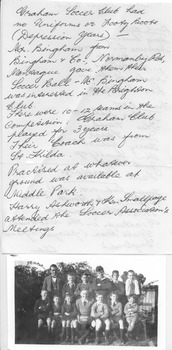 Graham Soccer Club had
no Uniforms or Footy Boots
(Depression Years)
Mr. Bingham from
Bingham & Co., Normanby Rd,
Montague gave them their
Soccer Ball & Mr Bingham
was interested in the Brighton
Club.
There were 10-12 teams in the
Competition & Graham Club
played for 3 years
Their Coach was from
St. Kilda
Practised at whatever
ground was available at
Middle Park.
Harry Ashworth & the
attended the Soccer Association's
Meetings